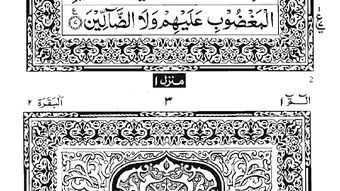 الْمَغْضُوبِ عَلَيْهِمْ وَلَا الضَّآلِّينَ ﴿٧﴾
منزل ١
2
الٓمّٓ ١ ٣ اَلْبَقَرَة ٢